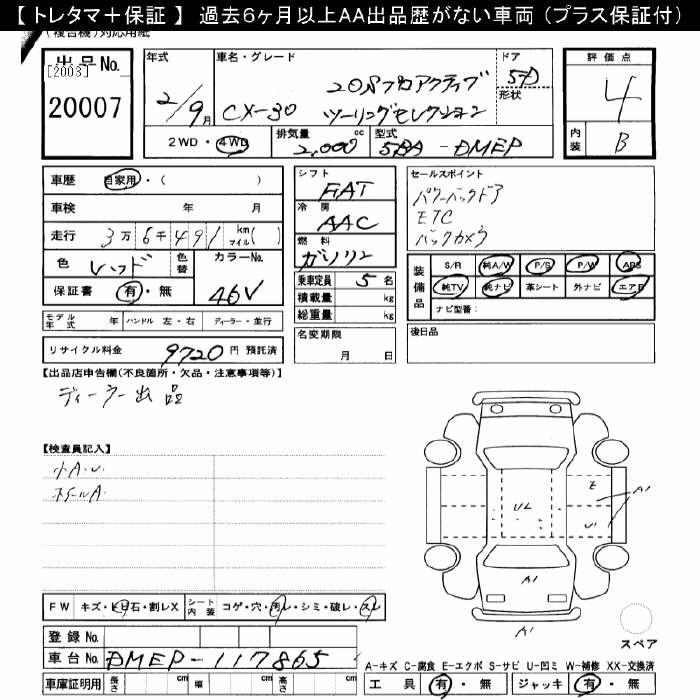 【トレタマ＋保証】 過去6ヶ月以上AA出品歴がない車両 (プラス保証付)
(複合機)対応用紙
出品No.
[2003]
20007
年式
2/9月
車名・グレード
CX-30
20Sプロアクティブ
ツーリングセレクション
ドア
5D
形状
評価点
4
内装
B
2WD・4WD
排気量
2,000 cc
型式
5BA-DMEP
車歴
自家用・( )
車検 年 月
走行 3万6千491 km マイル( )
色 レッド
色替
カラーNo.
46V
保証書 有・無
モデル年式 年 ハンドル 左・右 ディーラー・並行
リサイクル料金 9720円 預託済
シフト
FAT
冷房
AAC
燃料
ガソリン
乗車定員 5名
積載量 kg
総重量 kg
名変期限
月 日
セールスポイント
パワーバックドア
ETC
バックカメラ
装備品
S/R 純A/W P/S P/W ABS
純TV 純ナビ 革シート 外ナビ エアB
ナビ型番:
後日品
【出品店申告欄(不良箇所・欠品・注意事項等)】
ディーラー出品
【検査員記入】
小A.U.
ホイールA.
E
A1
UL
U1
A1
A1
スペア
FW キズ・ヒビ石・割レX
シート内装 コゲ・穴・汚レ・シミ・破レ・スレ
登録No.
車台No. DMEP-117865
車庫証明用 長さ cm 幅 cm 高さ cm
A-キズ C-腐食 E-エクボ S-サビ U-凹ミ W-補修 XX-交換済
工具 有・無 ジャッキ 有・無